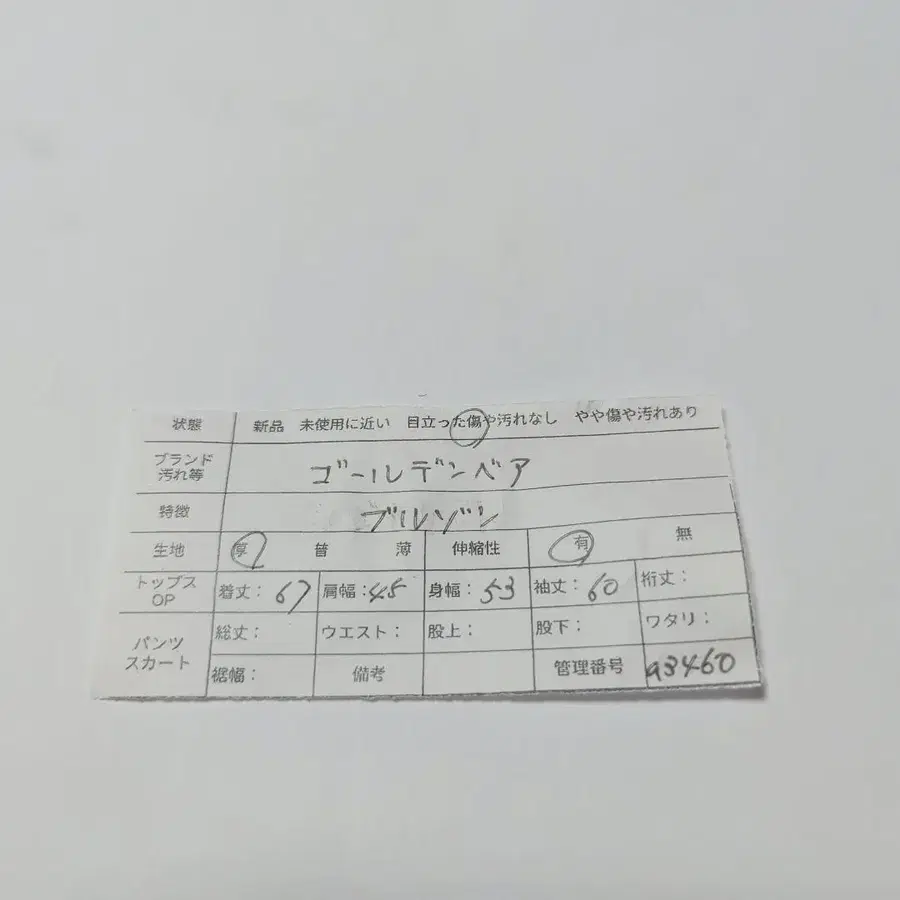 状態 新品 未使用に近い 目立った傷や汚れなし やや傷や汚れあり
ブランド
汚れ等 ゴールデンベア
特徴 ブルゾン
生地 厚 普 薄 伸縮性 有 無
トップス
OP 着丈：67 肩幅：45 身幅：53 袖丈：60 裄丈：
パンツ
スカート 総丈： ウエスト： 股上： 股下： ワタリ：
裾幅： 備考 管理番号 a3460